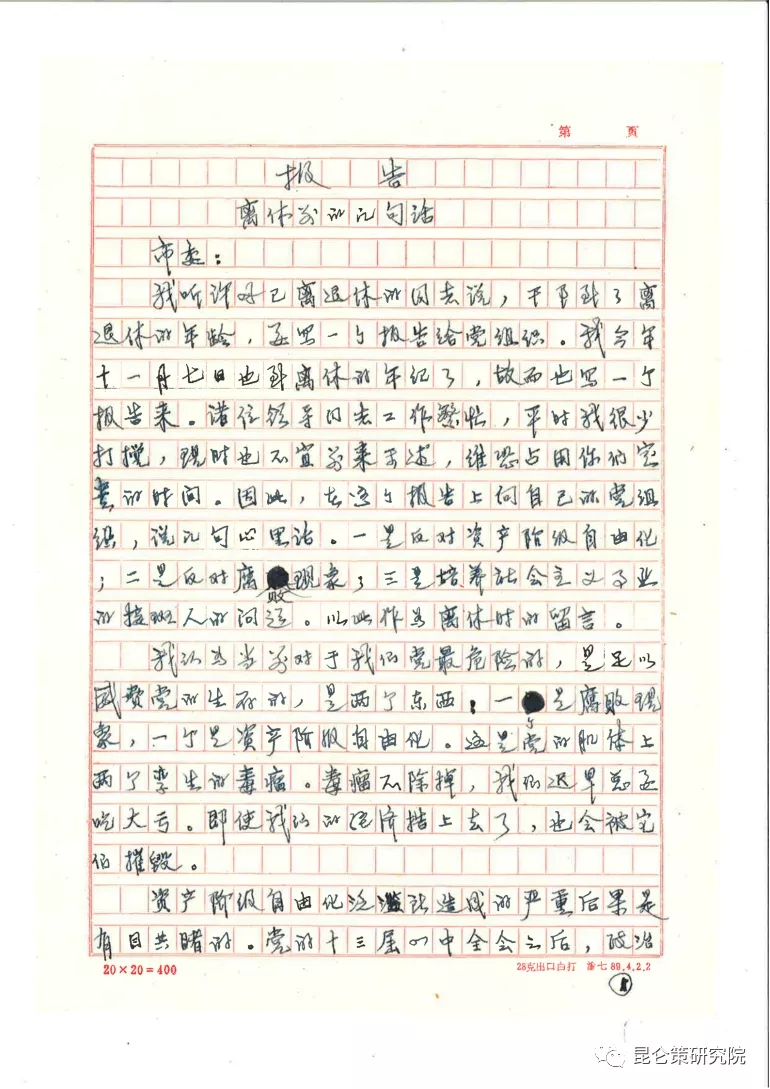 第 页
报 告
离休前的几句话
市委：
我听许多已离退休的同志说，干部到了离
退休的年龄，要写一个报告给党组织。我今年
十一月七日也到离休的年纪了，故而也写一个
报告来。诸位领导同志工作繁忙，平时我很少
打搅，现时也不宜前来面述，惟恐占用你们宝
贵的时间。因此，在这个报告上向自己的党组
织，说几句心里话。一是反对资产阶级自由化
；二是反对腐败现象；三是培养社会主义事业
的接班人的问题。以此作为离休时的留言。
我认为当前对于我们党最危险的，是足以
威胁党的生存的，是两个东西：一个是腐败现
象，一个是资产阶级自由化。这是党的肌体上
两个孪生的毒瘤。毒瘤不除掉，我们迟早总要
吃大亏。即使我们的经济搞上去了，也会被它
们摧毁。
资产阶级自由化泛滥所造成的严重后果是
有目共睹的。党的十三届四中全会之后，政治
20×20=400
28克出口白打 渝七 89.4.2.2
1
昆仑策研究院